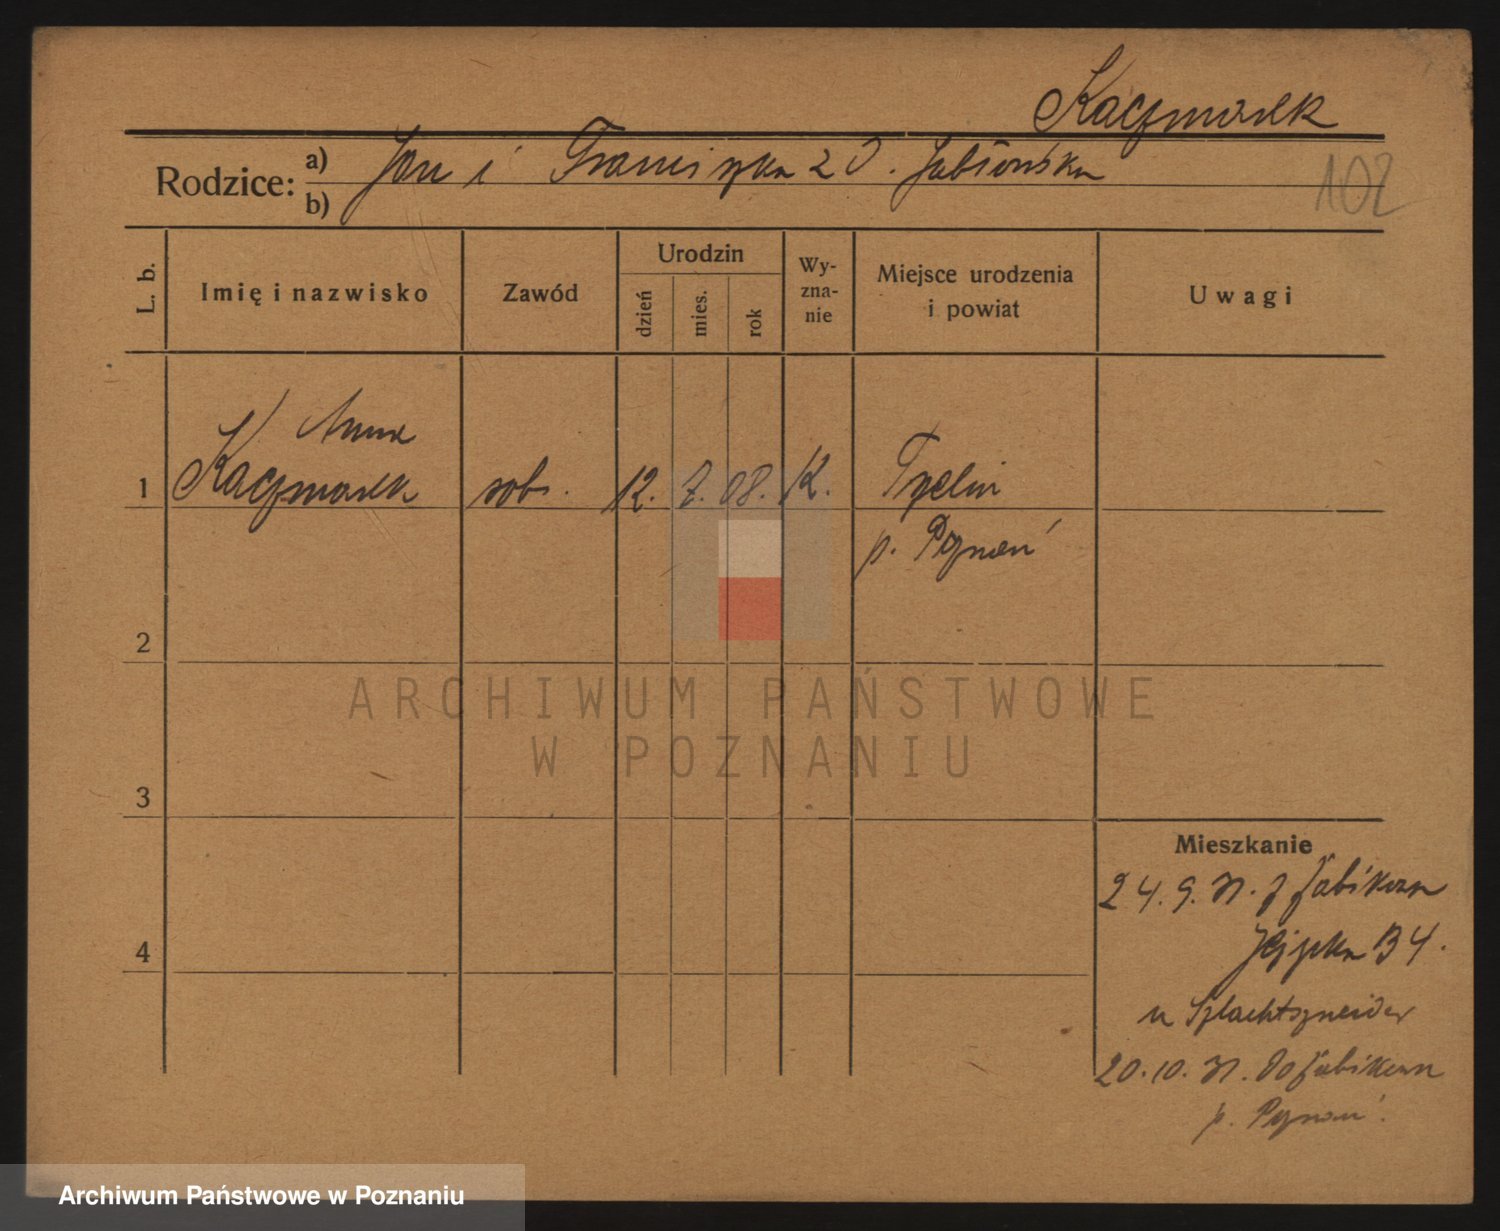 Kaczmarek
102
Rodzice: a) Jan i Franciszka z d. Jabłońska
b)
L. b.
Imię i nazwisko
Zawód
Urodzin
dzień
mies.
rok
Wy-
zna-
nie
Miejsce urodzenia
i powiat
Uwagi
Anna
1 Kaczmarek rob. 12. 7. 08. K.
p. Poznań
2
3
4
Mieszkanie
24. 9. 31. z
34.
u
20. 10. 31. do
p. Poznań
ARCHIWUM PAŃSTWOWE
W POZNANIU
Archiwum Państwowe w Poznaniu